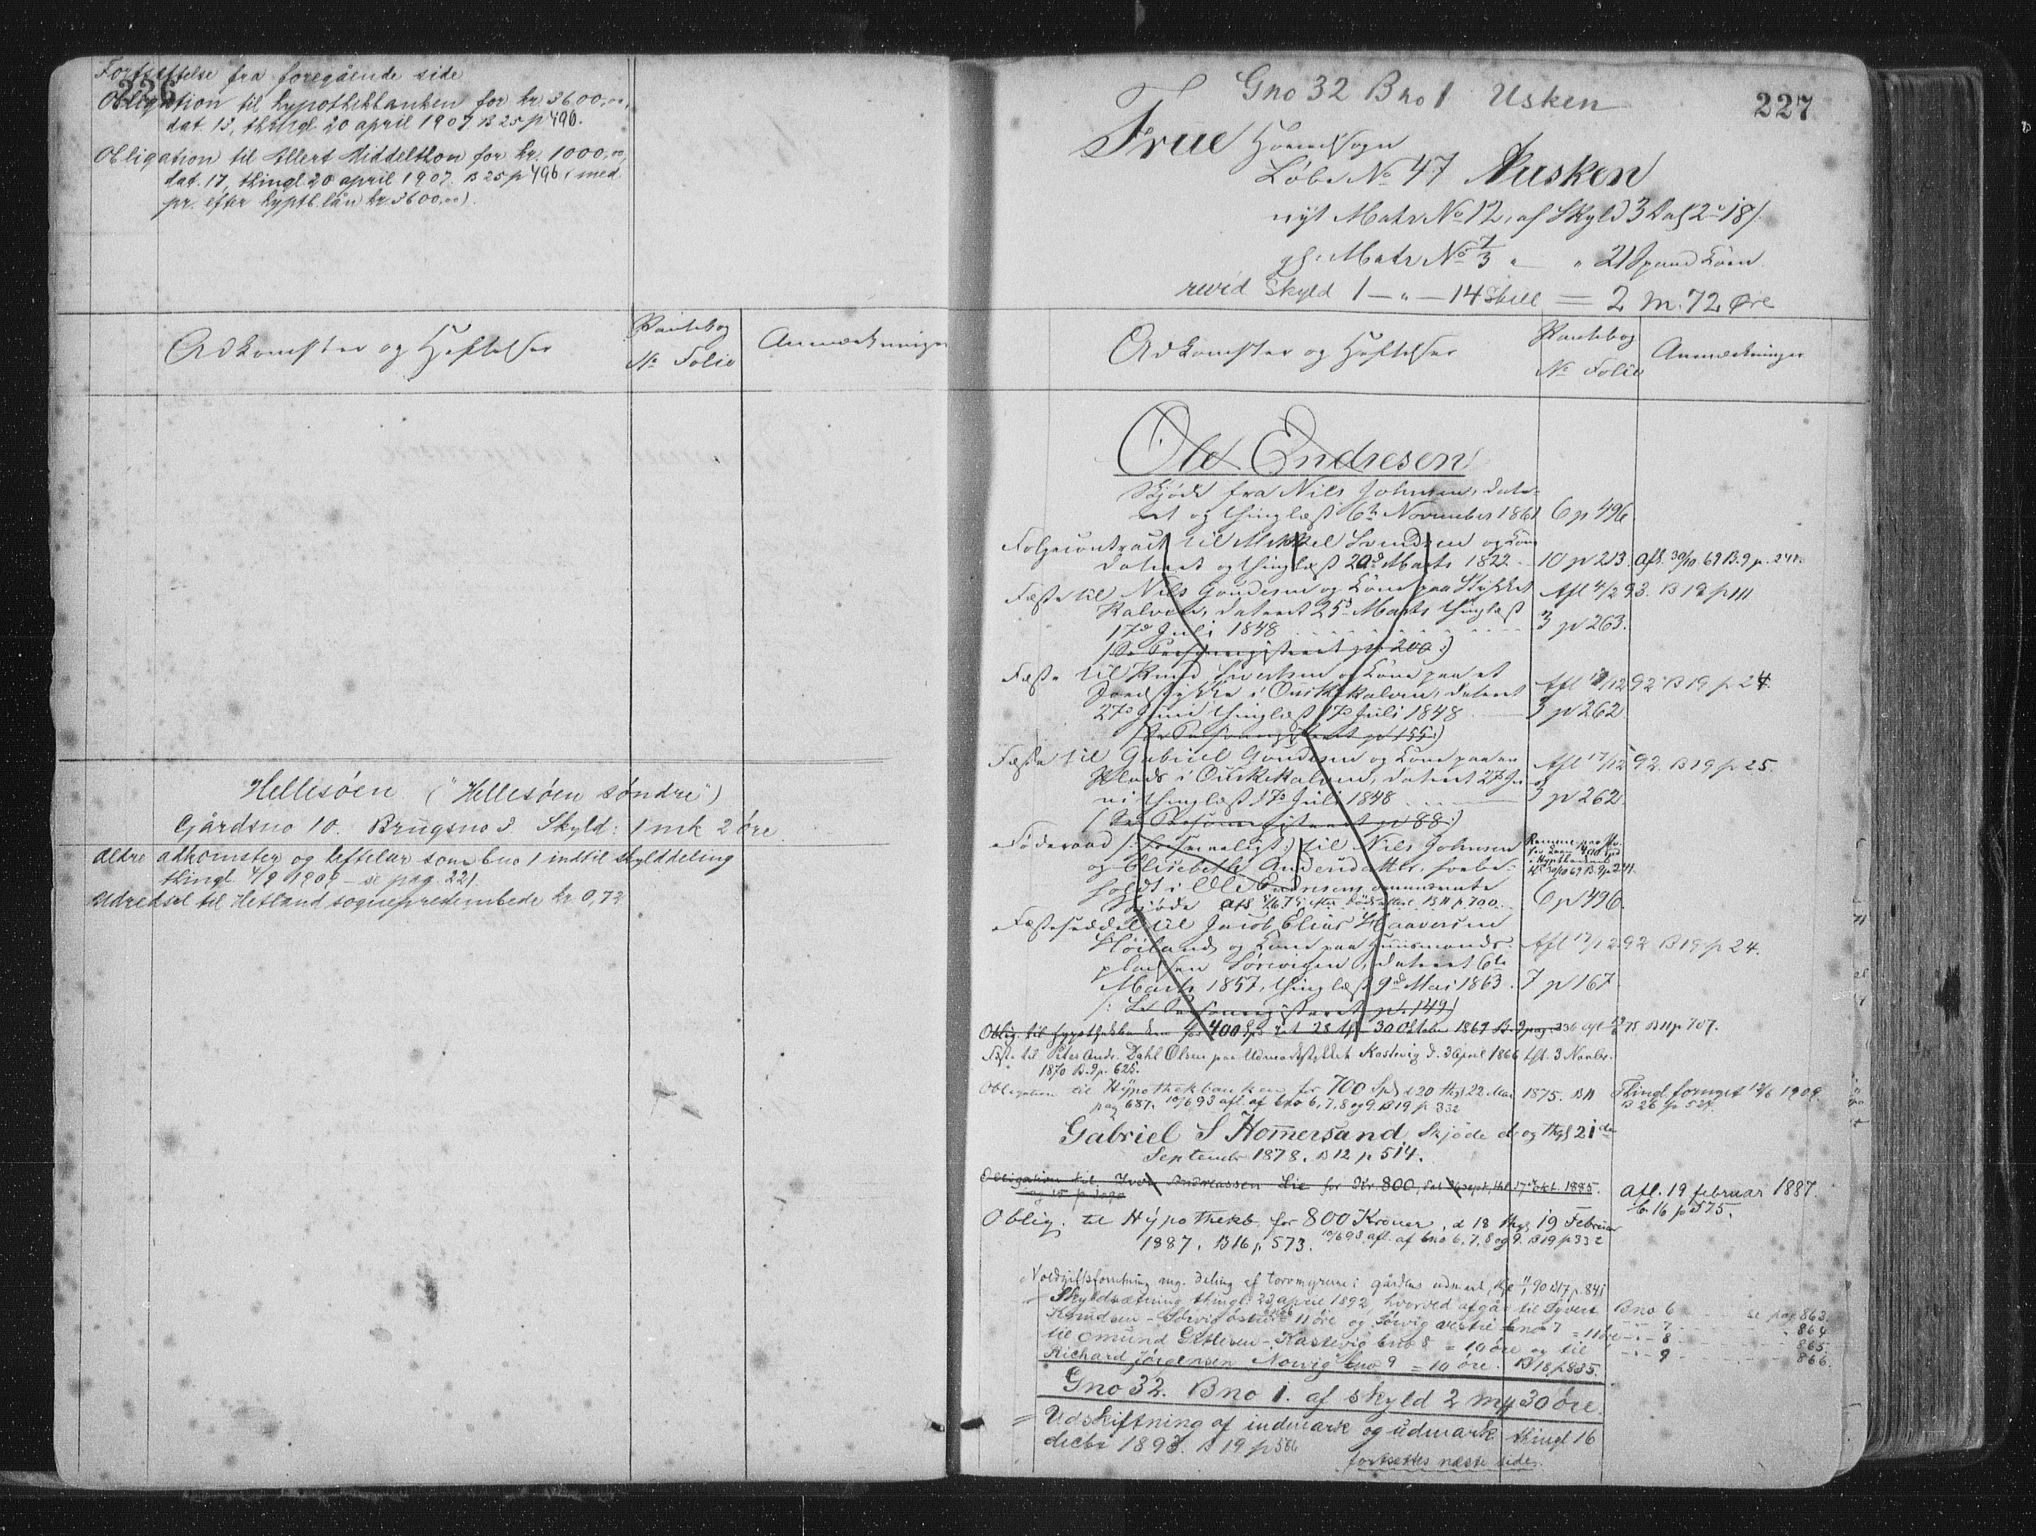 226
Fortsættelse fra foregående side
Obligation til hypothekbanken for kr. 3600,00,
dat. 13, thingl. 20 april 1907. B 25 p 496.
Obligation til Ellert Middelthon for kr. 1000,00,
dat. 17, thingl 20 april 1907. B 25 p 496 (med
pr. efter hypth.lån kr. 3600,00).
Adkomster og Heftelser
Pantebog
No Folio
Anmærkninger
Hellesøen ("Hellesøen søndre")
Gårdsno 10. Brugsno 3. Skyld: 1 mk 2 øre
Ældre adkomster og heftelser som bno 1 indtil skylddeling
thingl. 4/9 1909 - se pag. 221.
Udredsel til Hetland sogneprestembede kr 0,72
Gno 32 Bno 1 Usken
227
Frue
Løbe No 47 Ausken
nyt Matr No 12, af Skyld 3 Dal 2 - 18 /.
gl. Matr No 7/3 " - " 2 1 Spand Korn
revid Skyld 1 - " - 14 Skill = 2 M. 72 Øre
Adkomster og Heftelser
Pantebog
No Folio
Anmærkninger
Ole Endresen
Skjøde fra Nils Johnsen, date-
ret og thinglæst 6te November 1861
6 p 496
Følgecontract til Mikkel Svendsen og Kone
dateret og thinglæst 20de Marts 1822
10 p 213
Afl. 30/10 69 B. 9 p. 241.
Fæste til Nils Gundersen og Kone paa Stykket
Kalven, dateret 25de Marts thinglæst
17de Juli 1848
Afl 4/2 93. B 19 p 111
3 p 263.
(Se Personregisteret p. 200)
Fæste til Knud Sivertsen og Kone paa et
Jordstykke i Ouskekalven, dateret
27de Juni thinglæst 17de Juli 1848
Afl 17/12 92 B 19 p 24.
3 p 262
(Se Personregisteret p 155.)
Fæste til Gabriel Gundersen og Kone paa en
Plads i Ouskekalven, dateret 27de Ju-
ni thinglæst 17de Juli 1848
Afl 17/12 92. B 19 p 25.
3 p 262
(Se Personregisteret p 88.)
Føderaad til Nils Johnsen
og Elisabeth Andersdatter, forbe-
holdt i Ole Endresens
Skjøde
6 p 496
Fæsteseddel til Jacob Elias Haaversen
Høiland og Kone paa Huusmands-
pladsen Sørevigen, dateret 6te
Marts 1857, thinglæst 9de Mai 1863.
Afl 17/12 92 B 19 p 24.
7 p 167
(: Se Personregisteret p. 149)
Oblig. til Hypothekbanken for 400 Spd dat 28 th. 30 Oktbr 1869 B. 9 pag 236 afl 75 B 11 p 707.
Fæste til Peter Andr. Dahl Olsen paa Udmarkstykket Kastevig d. 3 April 1866 th. 3 Novbr.
1870 B. 9 p. 625.
Obligation til Hypothekbanken for 700 Spd d 20 thgl 22 Mai 1875. B 11
pag 687. 10/6 93 afl. af bno 6, 7, 8 og 9. B 19 p 332
Thingl fornyet 12/6 1909
B 26 p 527.
Gabriel S Homersand, Skjøde d. og thgl 21de
September 1878. B 12 p 514.
Obligation til Iver Andreassen Lie for Kr 800, dat 26 sept, thl 17 okt. 1885.
Afl. 19 februar 1887
b. 16 p 575.
Oblig. til Hypothekb. for 800 Kroner, d 18 thgl 19 Februar
1887. B 16 p. 573. 10/6 93. afl. af bno 6, 7, 8 og 9. B 19 p 332
Voldgiftsforretning ang. deling af torvmyrene i gårdens udmark, B 17 p. 841
Skyldsætning thingl. 23 april 1892, hvorved afgår til Syvert
Knudsen - Sørvig østre bno 6 11 øre og Sørvig vestre bno 7 = 11 øre
til Omund Gitlesen - Kastevig bno 8 = 10 øre og til
Richard Jørgensen Norvig bno 9 = 10 øre. B 18 p 835.
Bno 6 se pag 863.
7 " 864
8 " 865.
9 866.
Gno 32. Bno 1. af skyld 2 mk 30 øre.
Udskiftning af indmark og udmark thingl 16
decbr 1893. B 19 p 586
fortsættes næste side.